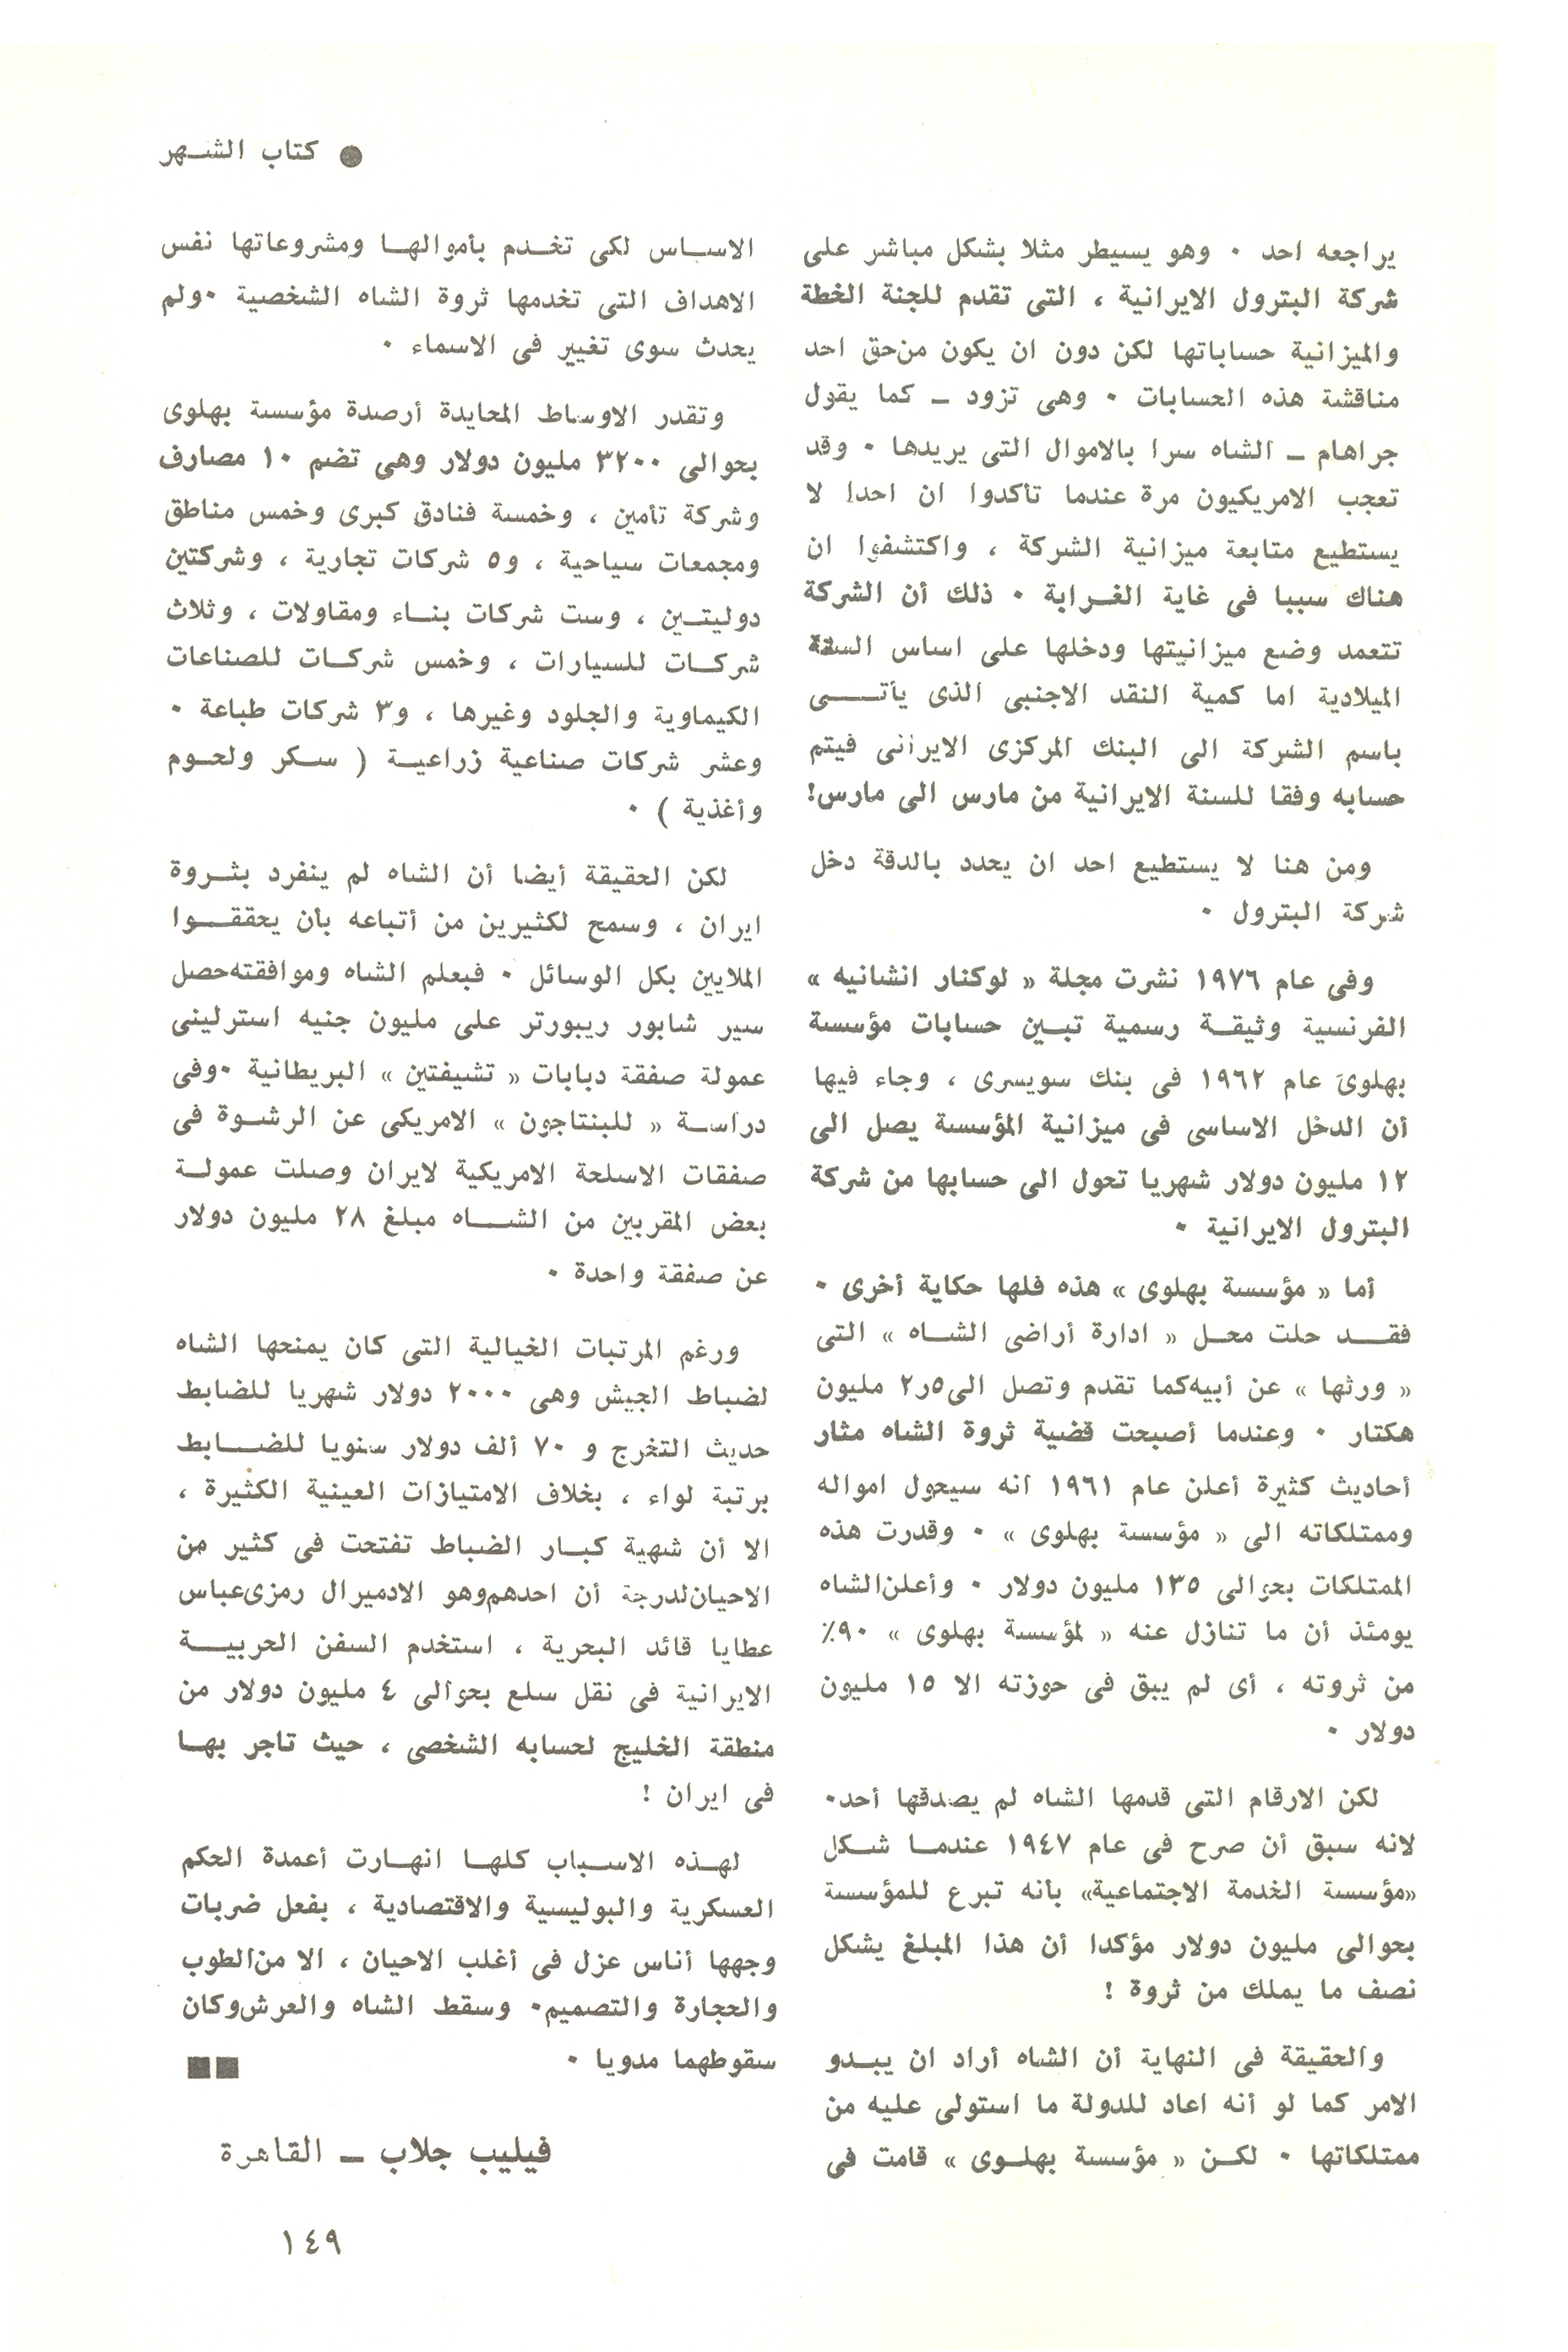 ● كتاب الشهر
يراجعه احد ٠ وهو يسيطر مثلا بشكل مباشر على
شركة البترول الايرانية ، التى تقدم للجنة الخطة
والميزانية حساباتها لكن دون ان يكون من حق احد
مناقشة هذه الحسابات ٠ وهى تزود ــ كما يقول
جراهام ــ الشاه سرا بالاموال التى يريدها ٠ وقد
تعجب الامريكيون مرة عندما تأكدوا ان احدا لا
يستطيع متابعة ميزانية الشركة ، واكتشفوا ان
هناك سببا فى غاية الغرابة ٠ ذلك أن الشركة
تتعمد وضع ميزانيتها ودخلها على اساس السنة
الميلادية اما كمية النقد الاجنبى الذى يأتى
باسم الشركة الى البنك المركزى الايرانى فيتم
حسابه وفقا للسنة الايرانية من مارس الى مارس!
ومن هنا لا يستطيع احد ان يحدد بالدقة دخل
شركة البترول ٠
وفى عام ١٩٧٦ نشرت مجلة « لوكنار انشانيه »
الفرنسية وثيقة رسمية تبين حسابات مؤسسة
بهلوى عام ١٩٦٢ فى بنك سويسرى ، وجاء فيها
أن الدخل الاساسى فى ميزانية المؤسسة يصل الى
١٢ مليون دولار شهريا تحول الى حسابها من شركة
البترول الايرانية ٠
أما « مؤسسة بهلوى » هذه فلها حكاية أخرى ٠
فقد حلت محل « ادارة أراضى الشاه » التى
« ورثها » عن أبيه كما تقدم وتصل الى ٢٫٥ مليون
هكتار ٠ وعندما أصبحت قضية ثروة الشاه مثار
أحاديث كثيرة أعلن عام ١٩٦١ انه سيحول امواله
وممتلكاته الى « مؤسسة بهلوى » ٠ وقدرت هذه
الممتلكات بحوالى ١٣٥ مليون دولار ٠ وأعلن الشاه
يومئذ أن ما تنازل عنه « لمؤسسة بهلوى » ٩٠٪
من ثروته ، أى لم يبق فى حوزته الا ١٥ مليون
دولار ٠
لكن الارقام التى قدمها الشاه لم يصدقها أحد٠
لانه سبق أن صرح فى عام ١٩٤٧ عندما شكل
«مؤسسة الخدمة الاجتماعية» بأنه تبرع للمؤسسة
بحوالى مليون دولار مؤكدا أن هذا المبلغ يشكل
نصف ما يملك من ثروة !
والحقيقة فى النهاية أن الشاه أراد ان يبدو
الامر كما لو أنه اعاد للدولة ما استولى عليه من
ممتلكاتها ٠ لكن « مؤسسة بهلوى » قامت فى
الاساس لكى تخدم بأموالها ومشروعاتها نفس
الاهداف التى تخدمها ثروة الشاه الشخصية ٠ولم
يحدث سوى تغيير فى الاسماء ٠
وتقدر الاوساط المحايدة أرصدة مؤسسة بهلوى
بحوالى ٣٢٠٠ مليون دولار وهى تضم ١٠ مصارف
وشركة تأمين ، وخمسة فنادق كبرى وخمس مناطق
ومجمعات سياحية ، و٥ شركات تجارية ، وشركتين
دوليتين ، وست شركات بناء ومقاولات ، وثلاث
شركات للسيارات ، وخمس شركات للصناعات
الكيماوية والجلود وغيرها ، و٣ شركات طباعة ٠
وعشر شركات صناعية زراعية ( سكر ولحوم
وأغذية ) ٠
لكن الحقيقة أيضا أن الشاه لم ينفرد بثروة
ايران ، وسمح لكثيرين من أتباعه بأن يحققوا
الملايين بكل الوسائل ٠ فبعلم الشاه وموافقته حصل
سير شابور ريبورتر على مليون جنيه استرلينى
عمولة صفقة دبابات « تشيفتين » البريطانية ٠وفى
دراسة « للبنتاجون » الامريكى عن الرشوة فى
صفقات الاسلحة الامريكية لايران وصلت عمولة
بعض المقربين من الشاه مبلغ ٢٨ مليون دولار
عن صفقة واحدة ٠
ورغم المرتبات الخيالية التى كان يمنحها الشاه
لضباط الجيش وهى ٢٠٠٠ دولار شهريا للضابط
حديث التخرج و ٧٠ ألف دولار سنويا للضابط
برتبة لواء ، بخلاف الامتيازات العينية الكثيرة ،
الا أن شهية كبار الضباط تفتحت فى كثير من
الاحيان لدرجة أن احدهم وهو الادميرال رمزى عباس
عطايا قائد البحرية ، استخدم السفن الحربية
الايرانية فى نقل سلع بحوالى ٤ مليون دولار من
منطقة الخليج لحسابه الشخصى ، حيث تاجر بها
فى ايران !
لهذه الاسباب كلها انهارت أعمدة الحكم
العسكرية والبوليسية والاقتصادية ، بفعل ضربات
وجهها أناس عزل فى أغلب الاحيان ، الا من الطوب
والحجارة والتصميم٠ وسقط الشاه والعرش وكان
سقوطهما مدويا ٠
فيليب جلاب ــ القاهرة
١٤٩